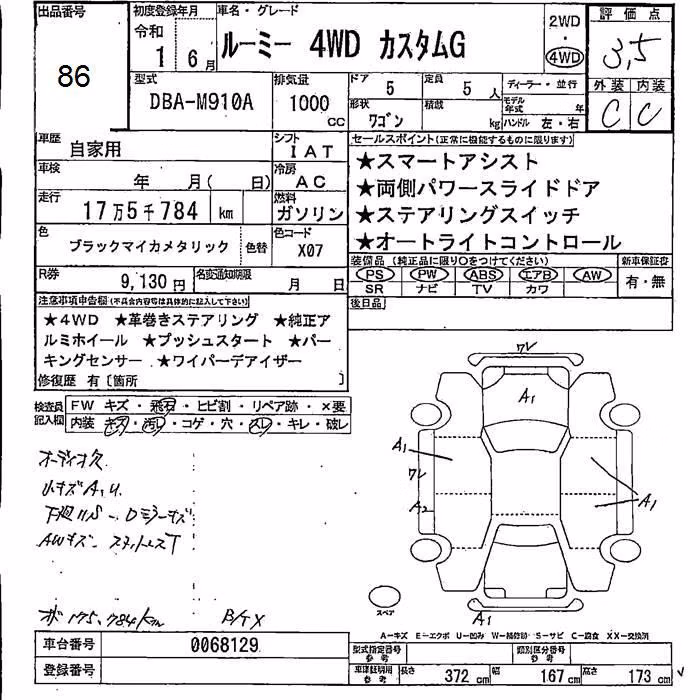 出品番号
86
初度登録年月
令和
1 6月
車名・グレード
ルーミー 4WD カスタムG
2WD
・
4WD
評価点
3,5
外装 内装
C C
型式
DBA-M910A
排気量
1000
CC
ドア
5
定員
5 人
ディーラー・並行
形状
ワゴン
積載
kg
モデル年式
年
ハンドル 左・右
車歴
自家用
シフト
IAT
車検
年 月( 日)
冷房
AC
走行
17万5千784 km
燃料
ガソリン
色
ブラックマイカメタリック
色替
色コード
X07
R券
9,130円
名変通知期限
月 日
セールスポイント(正常に機能するものに限ります)
★スマートアシスト
★両側パワースライドドア
★ステアリングスイッチ
★オートライトコントロール
装備品 (純正品に限り○をつけてください)
PS PW ABS エアB AW
SR ナビ TV カワ
新車保証書
有・無
後日品
注意事項申告欄(不具合内容等は具体的に記入して下さい)
★4WD ★革巻きステアリング ★純正ア
ルミホイール ★プッシュスタート ★パー
キングセンサー ★ワイパーデアイザー
修復歴 有〔箇所 〕
検査員記入欄
FW キズ・飛石・ヒビ割・リペア跡・×要
内装 キズ・汚レ・コゲ・穴・スレ・キレ・破レ
オーディオ欠
小キズA,U
AWキズ
175,784km
ワレ
A1
A1
ワレ
A2
A1
A1
スペア
A-キズ E-エクボ U-凹み W-補修跡 S-サビ C-腐食 XX-交換済
車台番号
0068129
登録番号
型式指定番号
参考
類別区分番号
参考
車検証明用
参考
長さ 372 cm
幅 167 cm
高さ 173 cm